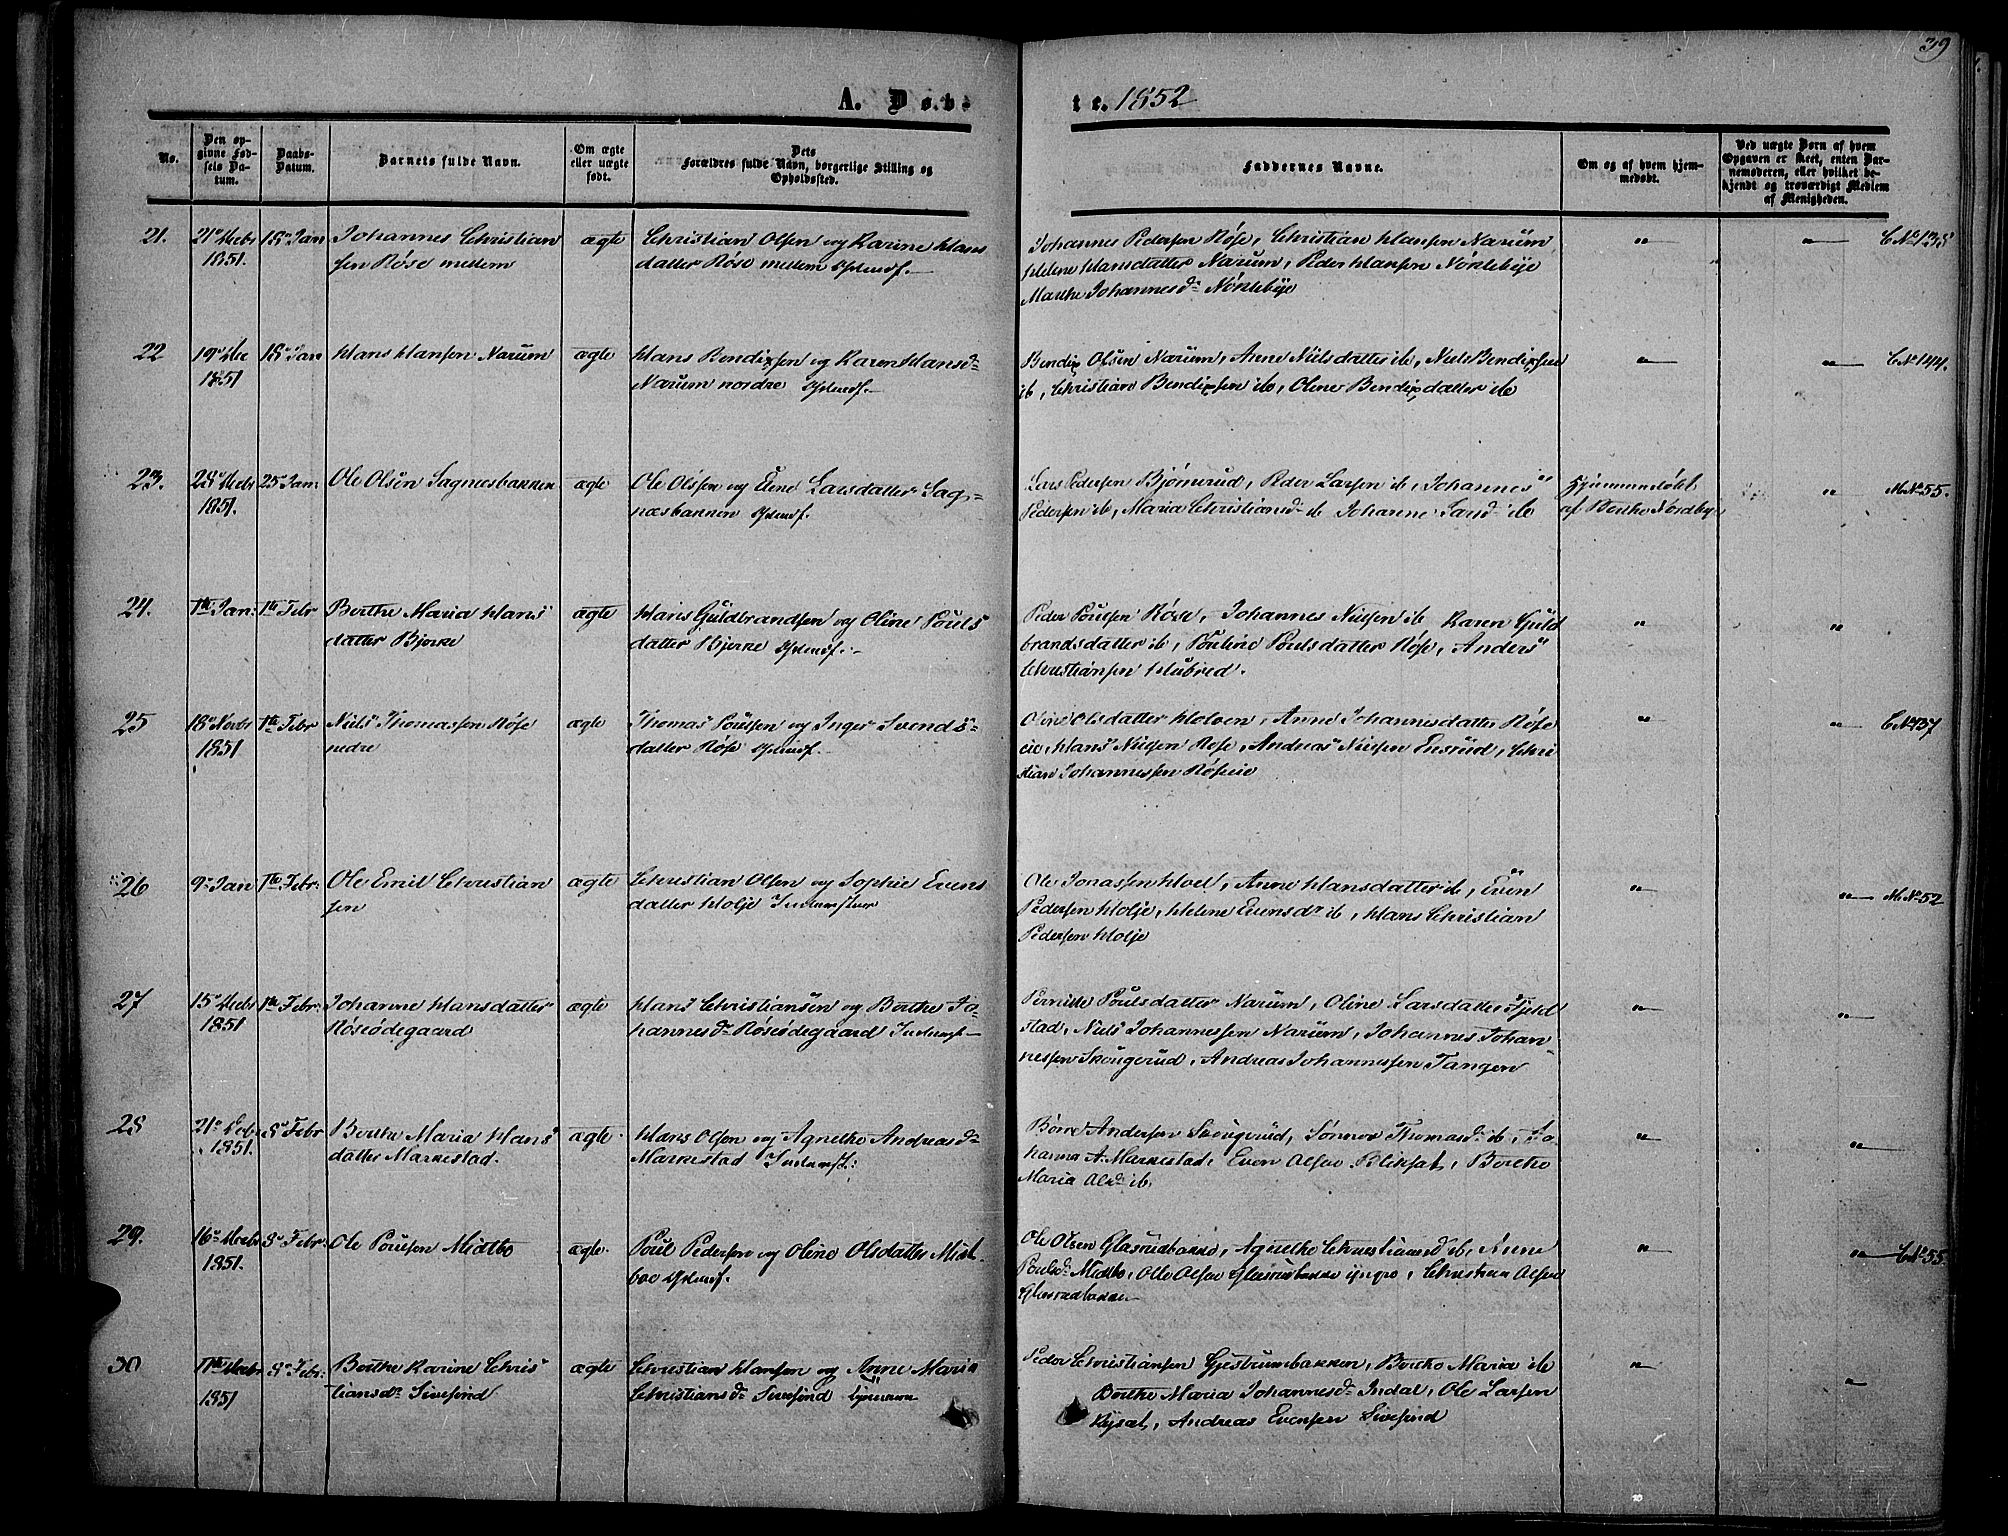 39
A. Døb-
te. 1852
No.
Den op-
givne Fød-
sels Da-
tum.
Daabs-
Datum.
Barnets fulde Navn.
Om ægte
eller uægte
født.
Dets
Forældres fulde Navn, borgerlige Stilling og
Opholdssted.
Faddernes Navne.
Om og af hvem hjem-
medøbt.
Ved uægte Born af hvem
Opgaven er skeet, enten Bar-
nemoderen, eller hvilket be-
kjendt og troværdigt Medlem
af Menigheden.
21.
1851.
18 Jan
Johannes Christian
sen Røse mellem
ægte
Christian Olsen og Karine Hans
datter Røse mellem
Johannes Pedersen Røse, Christian Hansen Narum,
Helene Hansdatter Narum, Peder Hansen Nøklebye
Marthe Johannesd. Nøklebye
C No 135
22
1851
18 Jan
Hans Hansen Narum
ægte
Hans Bendixsen og Karen Hansd.
Narum nordre
Bendix Olsen Narum, Anne Nilsdatter ib, Niels Bendixsen
ib, Christian Bendixsen ib, Oline Bendixdatter ib
C No 144.
23.
1851.
25 Jan:
Ole Olsen Sagnesbakken
ægte
Ole Olsen og Eline Larsdatter Sag-
næsbakken
Lars Pedersen Bjørnerud, Peder Larsen ib, Johannes
Pedersen ib, Maria Christiansd. ib Johanne Larsd. ib
Hjemmendøbt
af Berthe Nordbye
M No 55.
24.
1te Jan:
1te Febr
Berthe Maria Hans
datter Bjerke
ægte
Hans Guldbrandsen og Oline Pouls
datter Bjerke
Peder Poulsen Røse, Johannes Nielsen ib Karen Guld
brandsdatter ib, Pouline Poulsdatter Røse, Anders
Christiansen Hubred.
25
18 Novbr
1851
1te Febr
Niels Thomassen Røse
nedre
ægte
Thomas Poulsen og Inger Svends-
datter Røse
Oline Olsdatter Holven, Anne Johannesdatter Røse
eie, Hans Nielsen Røse, Andreas Nielsen Ensrud, Chri
stian Johannessen Røseeie
C No 137
26
9 Jan
1te Febr:
Ole Emil Christian
sen
ægte
Christian Olsen og Sophie Evens
datter Holje Inderster
Ole Jonassen Hoel, Anne Hansdatter ib, Even
Pedersen Holje, Helene Evensdr ib, Hans Christian
Pedersen Holje
M No 52
27
1851
1te Febr:
Johanne Hansdatter
Røseødegaard
ægte
Hans Christiansen og Berthe Jo-
hannesd. Røseødegaard Inderst
Pernille Poulsdatter Narum, Oline Larsdatter Fjeld
stad, Niels Johannessen Narum, Johannes Johan-
nessen Skougerud, Andreas Johannessen Tangen
28
1851.
8 Febr
Berthe Maria Hans
datter Markestad.
ægte.
Hans Olsen og Agnethe Andreasd.
Markestad Inderst.
Børre Andersen Skougerud, Sønnov Thomasd. ib, Jo-
hanna A. Markestad, Even Olsen Bliksæt, Berthe
Maria Olsd. ib.
29.
1851.
8 Febr.
Ole Poulsen Midtbo
ægte.
Poul Pedersen og Oline Olsdatter Midt-
boe
Ole Olsen Glasrudbakke, Agnethe Christiansd. ib, Anne
Poulsd. Midtbo, Olle Olsen Glasrudbakke yngre, Christian Olsen
Glasrudbakken
C No 55
30
1851
8 Febr:
Berthe Karine Chris
tiansd. Sivesind
ægte
Christian Hansen og Anne Maria
Christiansd. Sivesind
Peder Christiansen Gjestrumbakken, Berthe Maria ib
Berthe Maria Johannesd. Indal, Ole Larsen
Rysæt, Andreas Evensen Sivesind